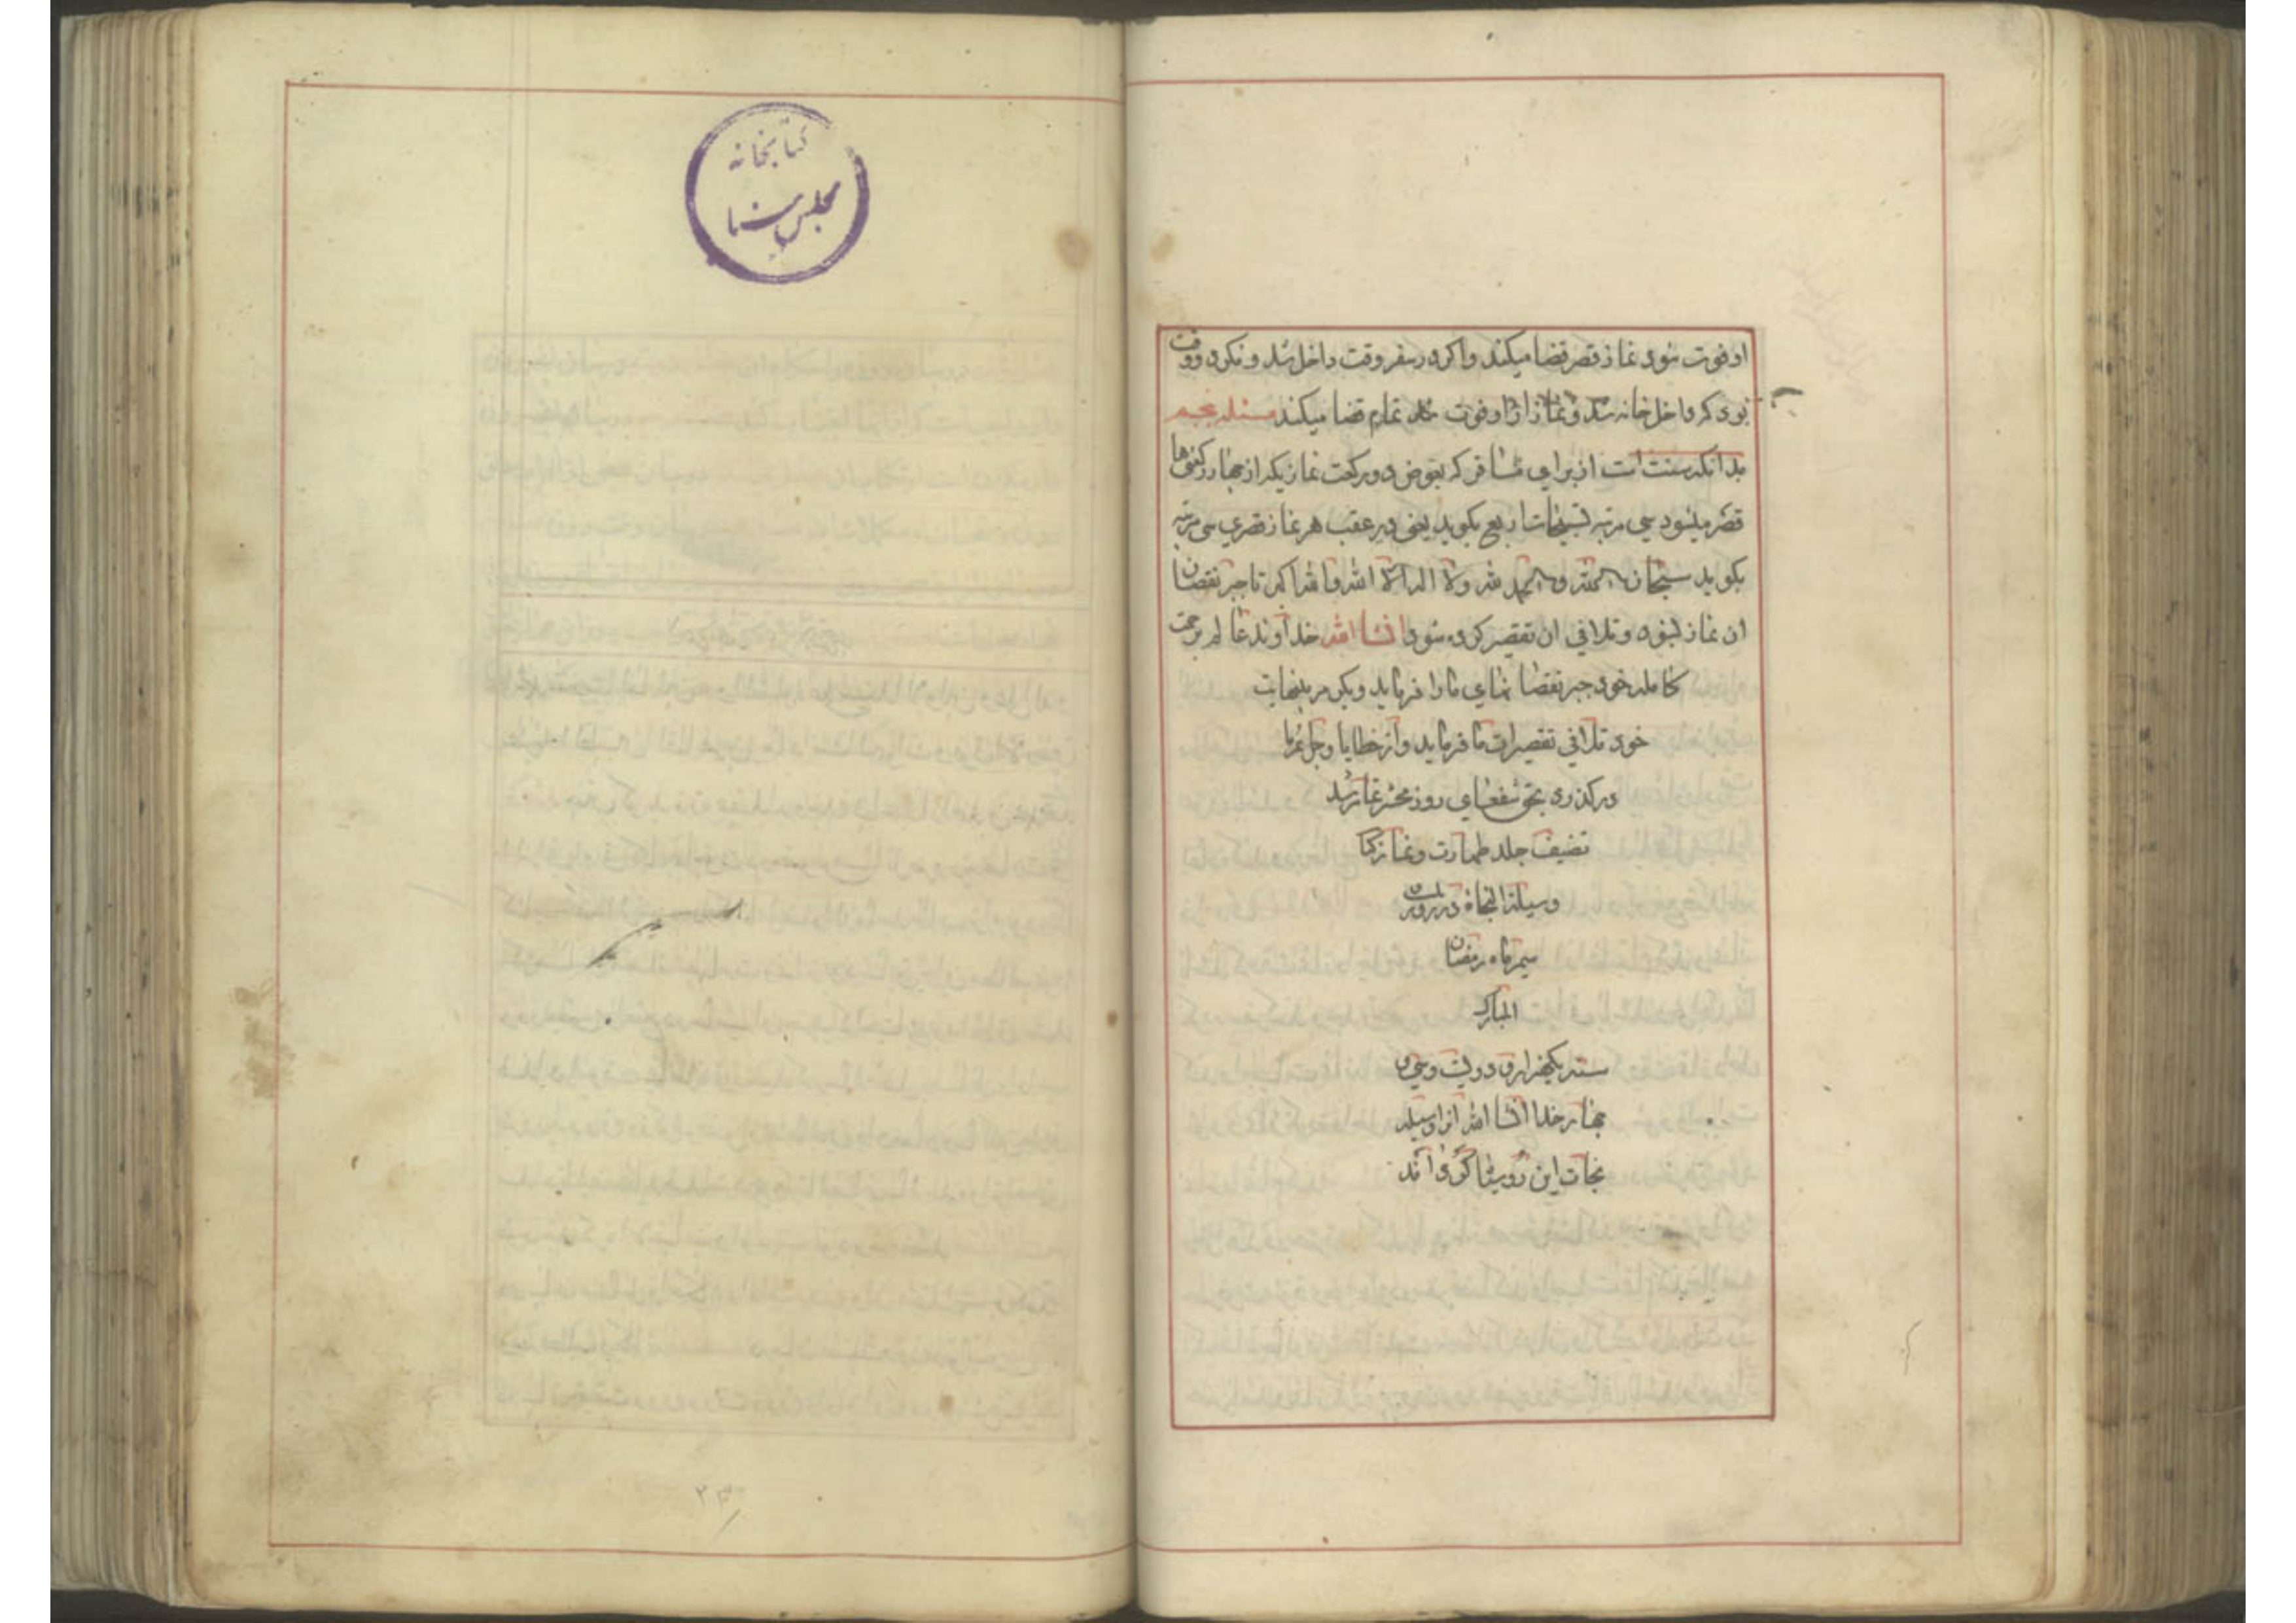 او فوت شود نماز قصر قضا میکند و اکر در سفر وقت داخل شد و نکرد و وقت
بود که داخل خانه شد و نماز از او فوت شد تمام قضا میکند مسئله پنجم
بدانکه سنت است از برای مسافر که بعوض دو رکعت نمازیکه از چهار رکعتی‌ها
قصر میشود سی مرتبه تسبیحات اربع بکوید یعنی در عقب هر نماز قصری سی مرتبه
بکوید سبحان الله و الحمد لله ولا اله الا الله والله اکبر تا جبر نقصان
ان نماز بشود و تلافی ان تقصیر کرده شود انشا الله خداوند عالم برحمت
کامله خود جبر نقصا نمای ما را فرماید و بکرم بینهایت
خود تلافی تقصیرات ما فرماید و از خطایا و جرمها
درکذرد بحق شفعای روز محشر تمام شد
تصنیف جلد طهارت و نماز کتا
وسیلة النجاة در روز
سیم ماه رمضان
المبارک
سنه یکهزار و دویست و سی و
چهار خدا انشا الله انرا وسیله
نجات این روسیاه کرداند
کتابخانه
مجلس سنا